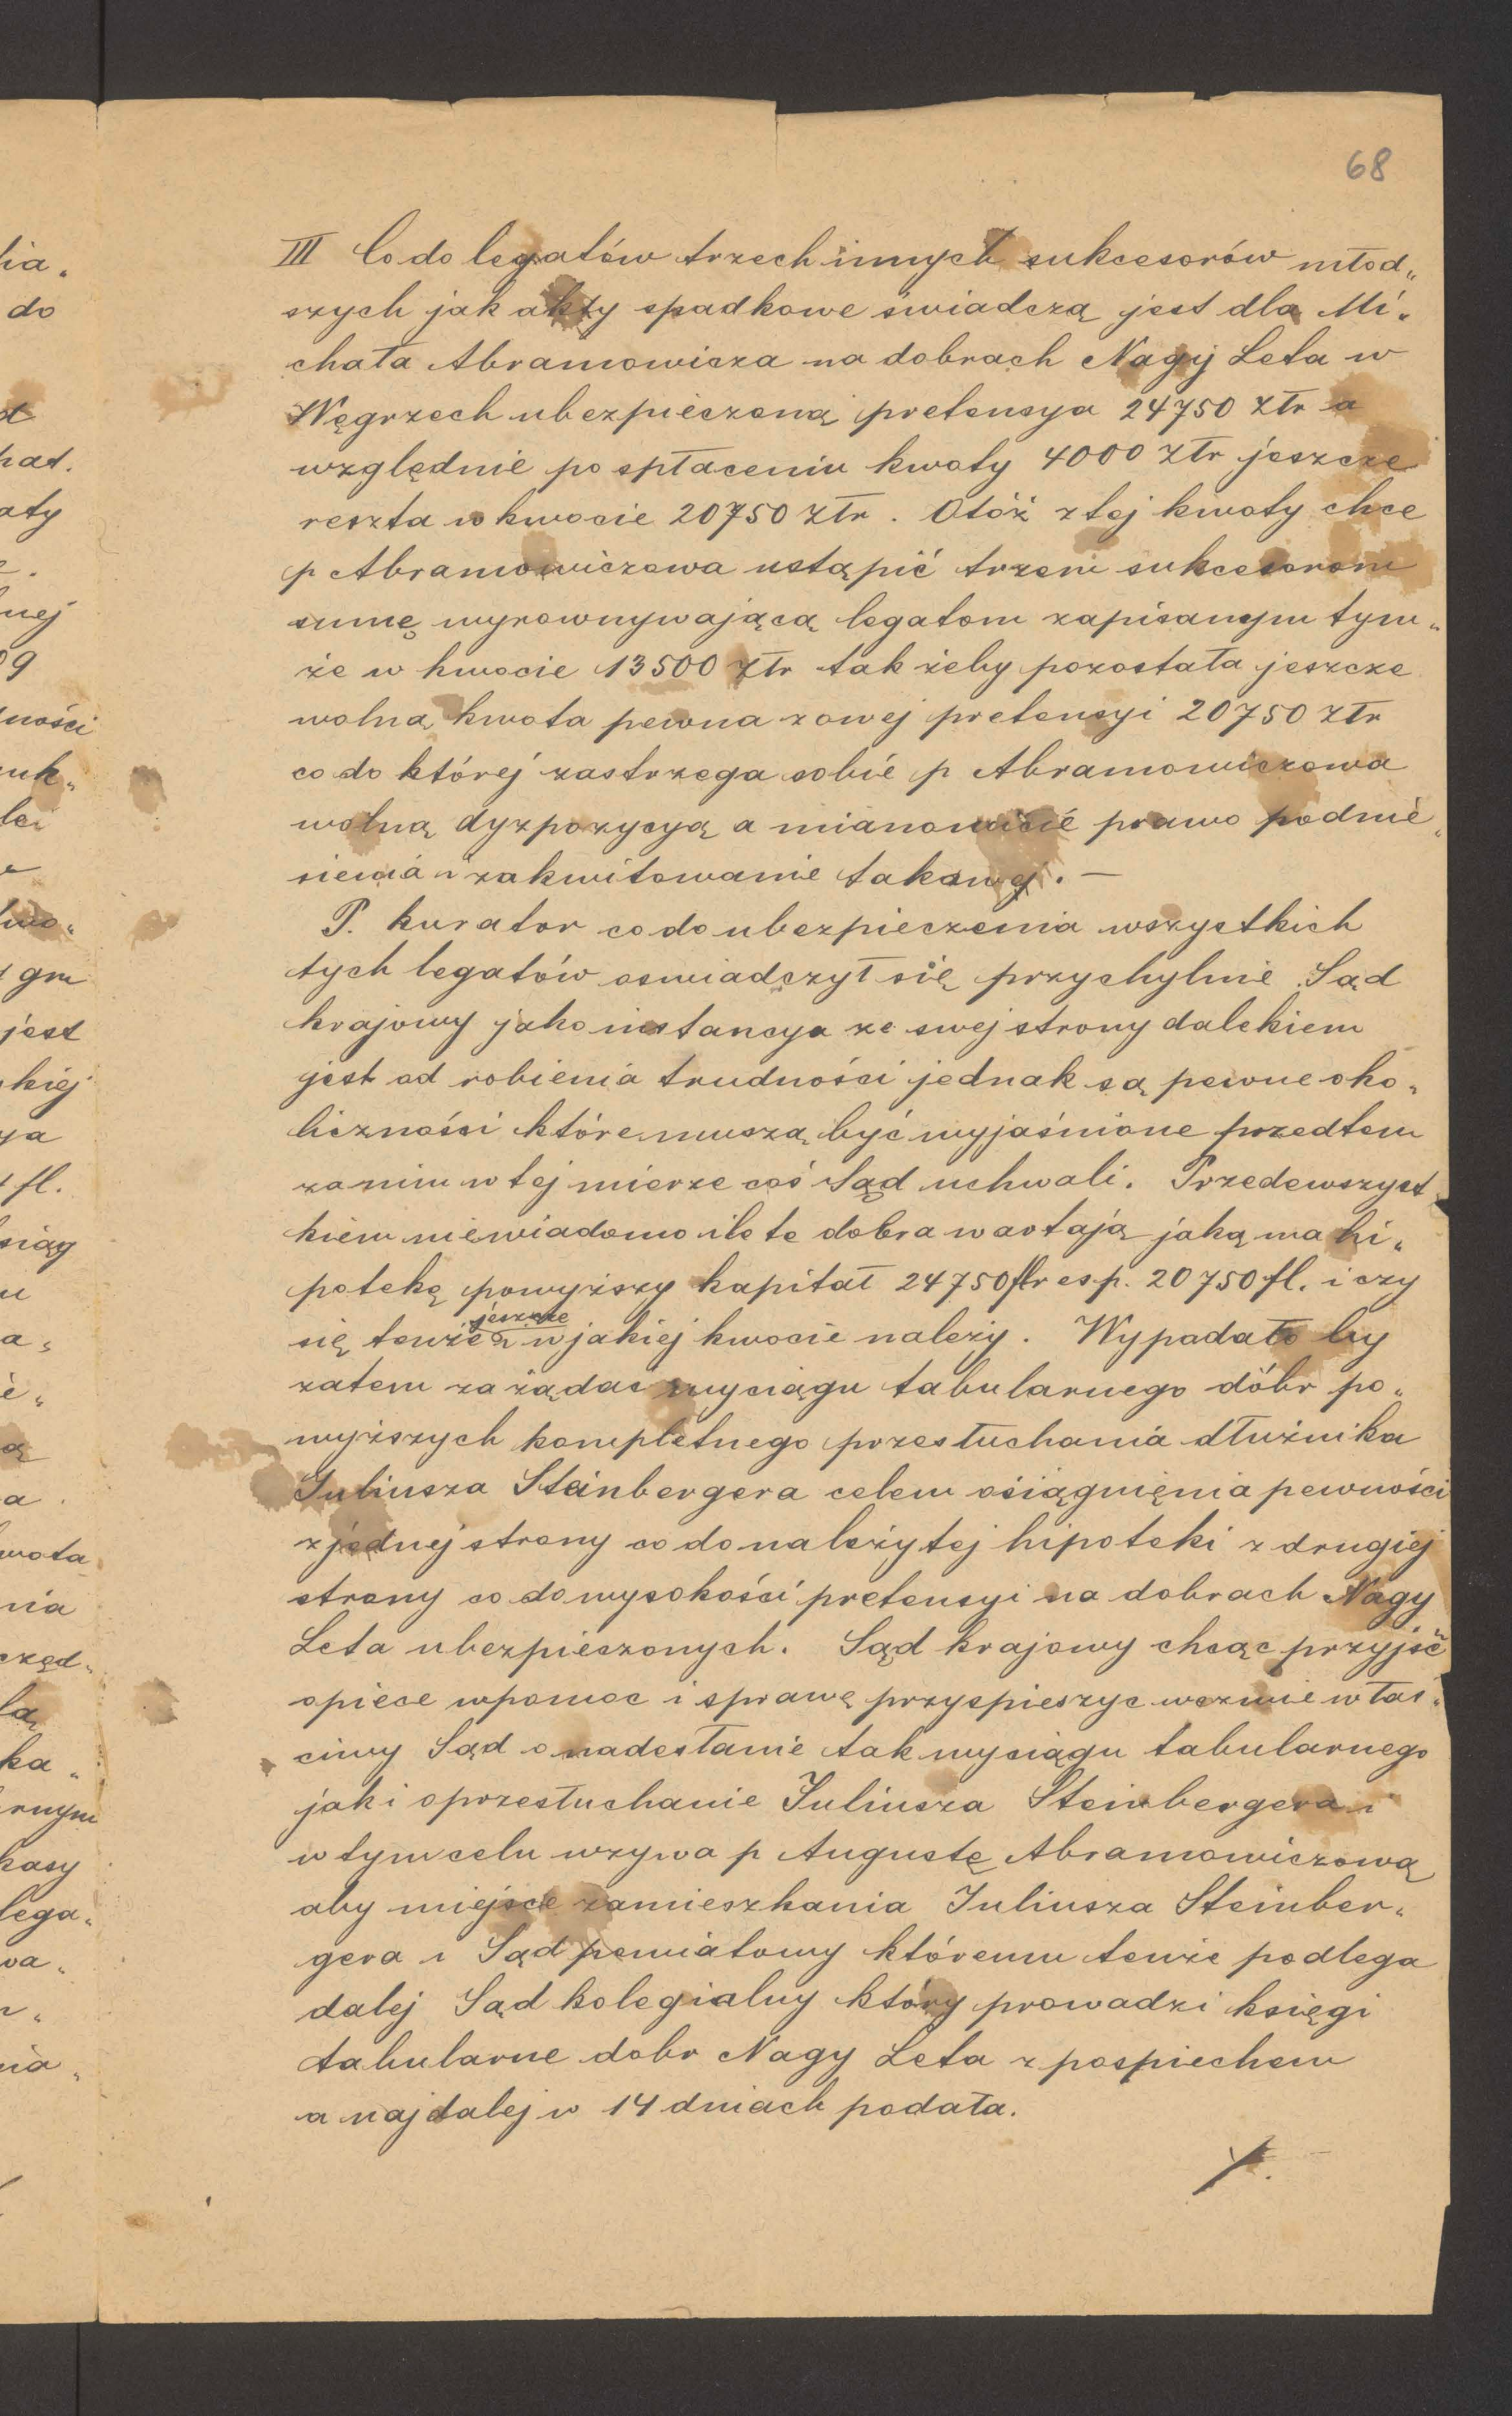 68
III Co do legatów trzech innych sukcesorów młod„
szych jak akty spadkowe świadczą jest dla Mi„
chała Abramowicza na dobrach Nagy Leta w
Węgrzech ubezpieczoną pretensya 24750 złr a
względnie po spłaceniu kwoty 4000 złr jeszcze
reszta w kwocie 20750 złr. Otóż z tej kwoty chce
p Abramowiczowa ustąpić trzem sukcesorom
sumę wyrownywającą legatom zapisanym tym„
że w kwocie 13500 złr tak żeby pozostała jeszcze
wolną kwota pewna zowej pretensyi 20750 złr
co do której zastrzega sobie p Abramowiczowa
wolną dyzpozycyą a mianowicie prawo podnie„
sienia i zakwitowanie takowej. —
P. kurator co do ubezpieczenia wszystkich
tych legatów oswiadczył się przychylnie Sąd
krajowy jako instancya ze swej strony dalekiem
jest od robienia trudności jednak są pewne oko„
liczności które muszą być wyjaśnione przedtem
zanim w tej mierze coś Sąd uchwali. Przedewszyst„
kiem niewiadomo ile te dobra wartają jaką ma hi„
potekę powyższy kapitał 24750 fl resp. 20750 fl. i czy
jeszcze
się tenże i w jakiej kwocie należy. Wypadało by
zatem zażądac wyciągu tabularnego dóbr po„
wyższych kompletnego przesłuchania dłużnika
Juliusza Steinbergera celem osiągnięnia pewności
z jednej strony co do należytej hipoteki z drugiej
strony co do wysokości pretensyi na dobrach Nagy
Leta ubezpieczonych. Sąd krajowy chcąc przyjść
opiece w pomoc i sprawę przyspieszyc wezwie właś„
ciwy Sąd o nadesłanie tak wyciągu tabularnego
jak i o przesłuchanie Juliusza Steinbergera i
w tym celu wzywa p Augustę Abramowiczową
aby miejsce zamieszkania Juliusza Steinber„
gera i Sąd powiatowy któremu tenże podlega
dalej Sąd kolegialny który prowadzi księgi
tabularne dobr Nagy Leta z pospiechem
a najdalej w 14 dniach podała.